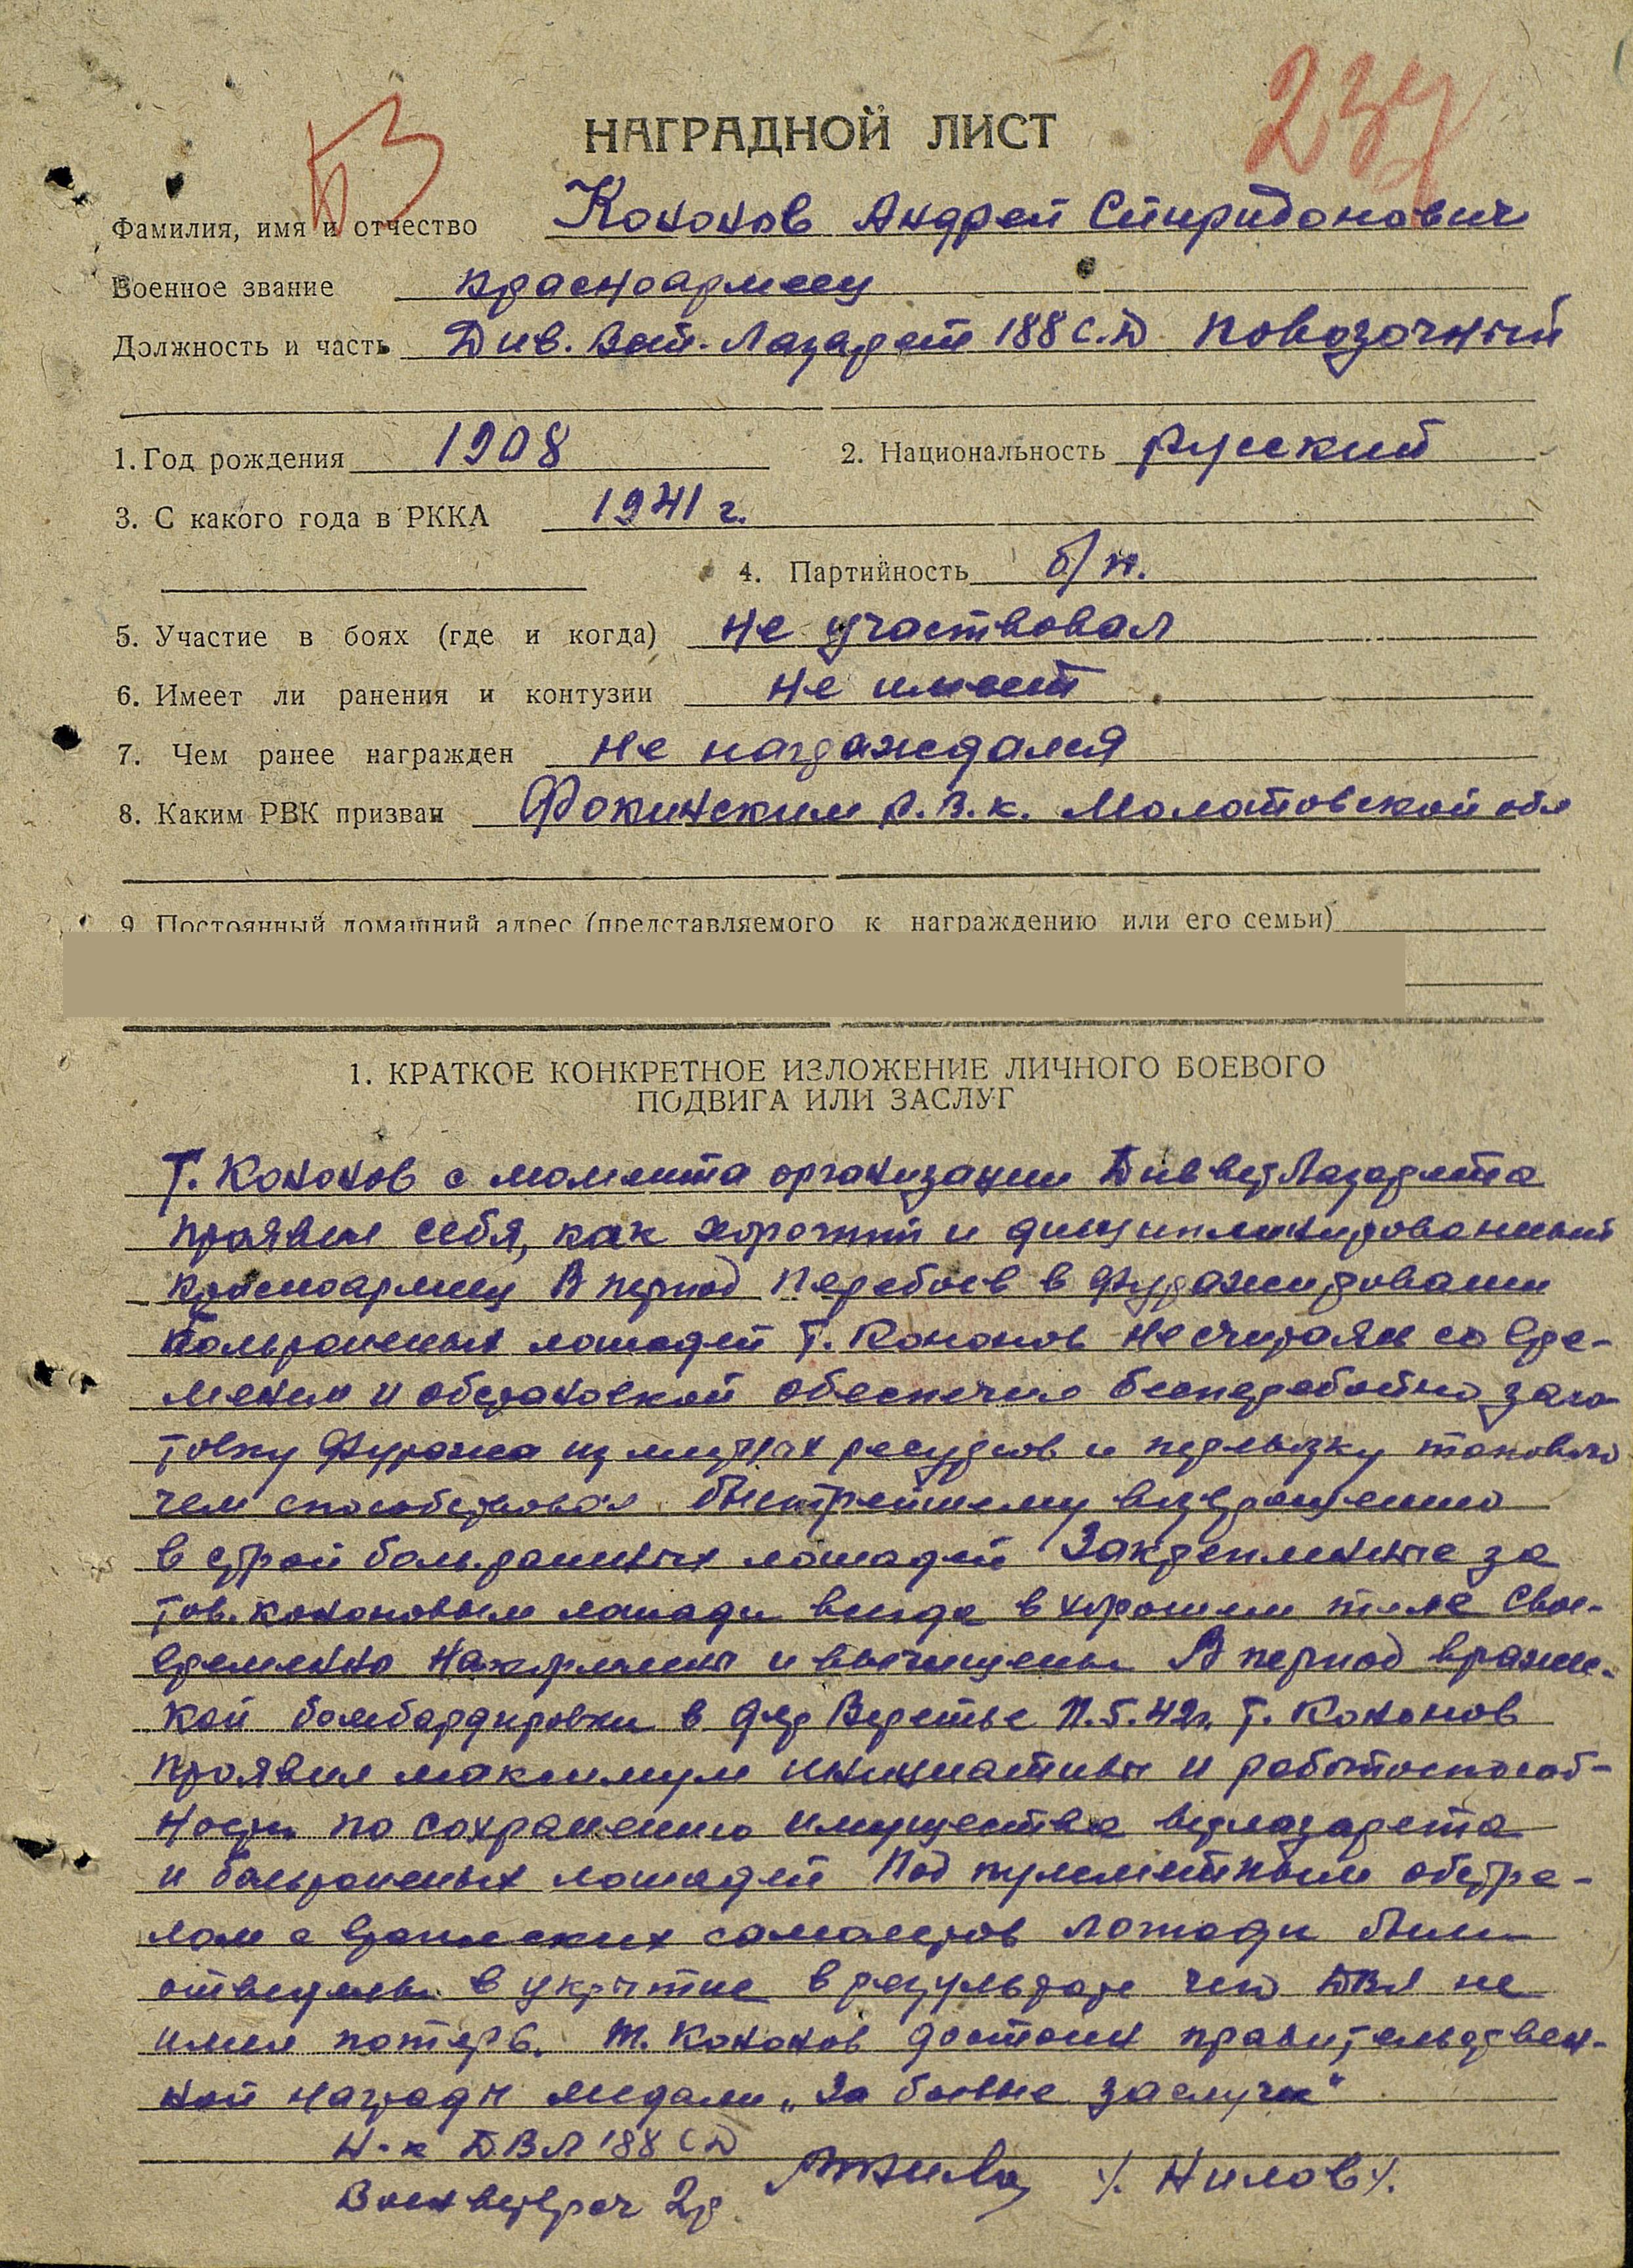 БЗ
237
НАГРАДНОЙ ЛИСТ
Фамилия, имя и отчество Кононов Андрей Спиридонович
Военное звание красноармеец
Должность и часть Див. Вет. Лазарет 188 С.Д повозочный
1. Год рождения 1908 2. Национальность русский
3. С какого года в РККА 1941 г.
4. Партийность б/п.
5. Участие в боях (где и когда) не участвовал
6. Имеет ли ранения и контузии не имеет
7. Чем ранее награжден не награждался
8. Каким РВК призван Фокинским Р.В.К. Молотовской обл
9. Постоянный домашний адрес (представляемого к награждению или его семьи)
1. КРАТКОЕ КОНКРЕТНОЕ ИЗЛОЖЕНИЕ ЛИЧНОГО БОЕВОГО
ПОДВИГА ИЛИ ЗАСЛУГ
Т. Кононов с момента организации Дивветлазарета
проявил себя, как хороший и дисциплинированный
красноармеец В период перебоев в фуражировании
больраненых лошадей т. Кононов не считаясь со вре-
менем и обстановкой обеспечил бесперебойно заго
товку фуража из местных ресурсов и подвозку такового
чем способствовал быстрейшему возвращению
в строй больраненых лошадей Закрепленные за
тов. Кононовым лошади всегда в хорошем теле Свое-
временно накормлены и вычищены В период вражес-
кой бомбардировки в дер Веретье 11.5.42г. т. Кононов
проявил максимум инициативы и работоспособ-
ности по сохранению имущества ветлазарета
и больраненых лошадей Под пулеметным обстре-
лом с вражеских самолетов лошади были
отведены в укрытие в результате чего ДВЛ не
имел потерь. Т. Кононов достоин правительствен-
ной награды медали „За боевые заслуги"
Н-к ДВЛ 188 СД
Военветврач 2р /. Нилов/.